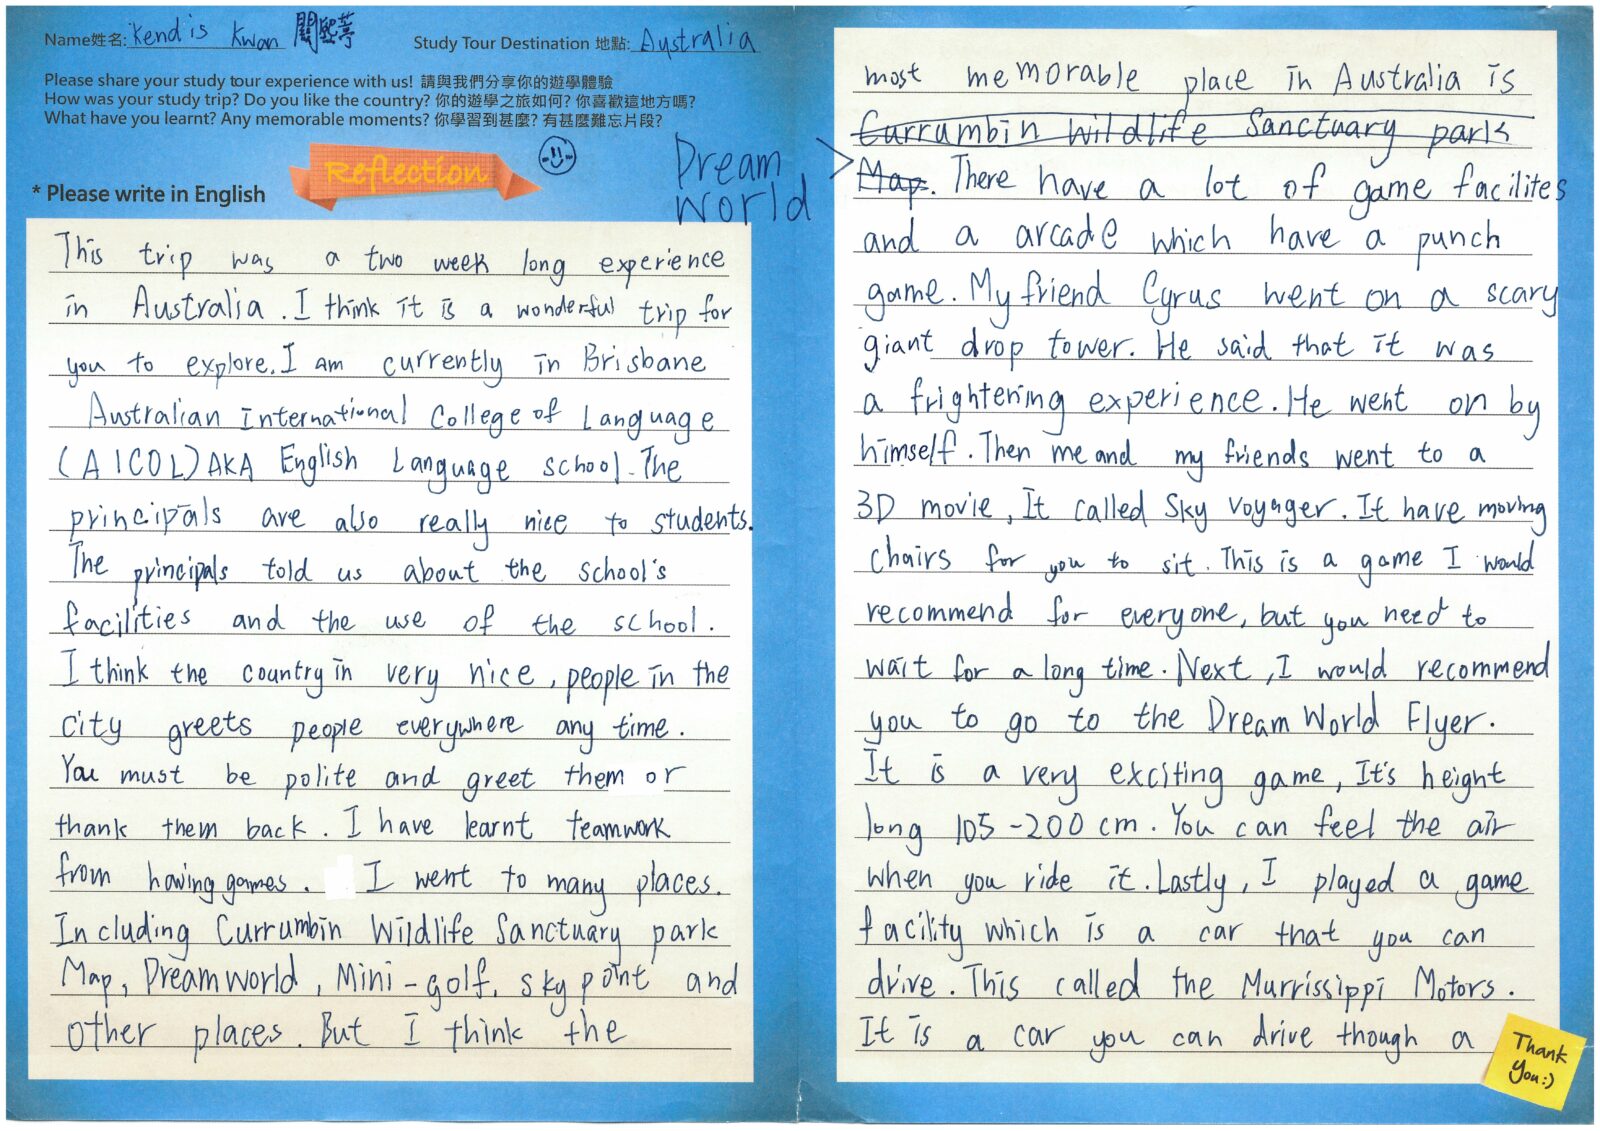 Name姓名: Kendis Kwan 關熙葶
Study Tour Destination 地點: Australia
Please share your study tour experience with us! 請與我們分享你的遊學體驗
How was your study trip? Do you like the country? 你的遊學之旅如何? 你喜歡這地方嗎?
What have you learnt? Any memorable moments? 你學習到甚麼? 有甚麼難忘片段?
Reflection
* Please write in English
This trip was a two week long experience
in Australia. I think it is a wonderful trip for
you to explore. I am currently in Brisbane
Australian International College of Language
(AICOL) AKA English Language school. The
principals are also really nice to students.
The principals told us about the school's
facilities and the use of the school.
I think the country in very nice, people in the
city greets people everywhere any time.
You must be polite and greet them or
thank them back. I have learnt teamwork
from having games. I went to many places.
Including Currumbin Wildlife Sanctuary park
Map, Dreamworld, Mini-golf, sky point and
other places. But I think the
most memorable place in Australia is
Currumbin Wildlife Sanctuary park
Dream
World
Map. There have a lot of game facilites
and a arcade which have a punch
game. My friend Cyrus went on a scary
giant drop tower. He said that it was
a frightening experience. He went on by
himself. Then me and my friends went to a
3D movie, It called Sky Voyager. It have moving
chairs for you to sit. This is a game I would
recommend for everyone, but you need to
wait for a long time. Next, I would recommend
you to go to the Dream World Flyer.
It is a very exciting game, It's height
long 105-200 cm. You can feel the air
when you ride it. Lastly, I played a game
facility which is a car that you can
drive. This called the Murrissippi Motors.
It is a car you can drive though a
Thank
You:)